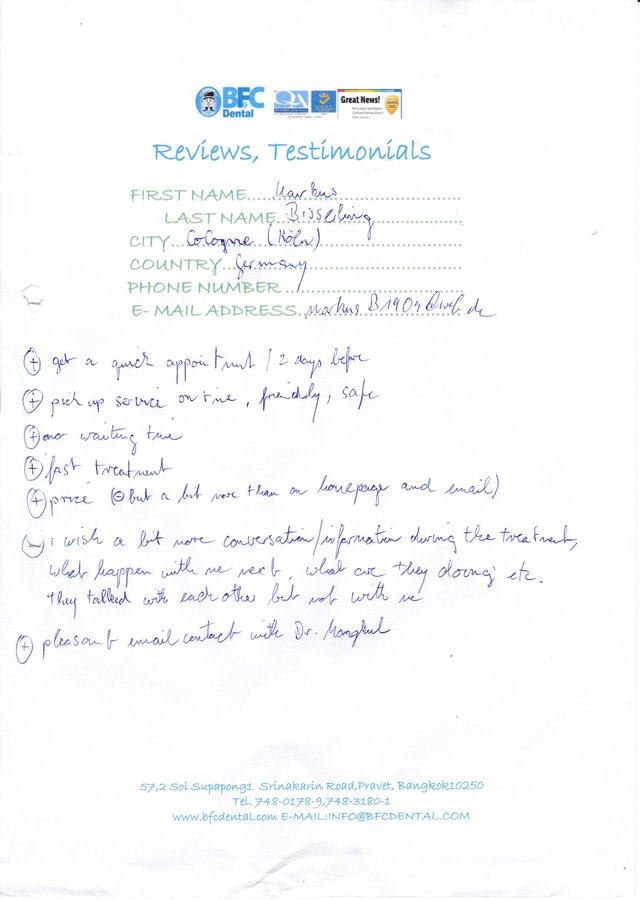 BFC
Dental
QA
Great News!
Reviews, Testimonials
FIRST NAME Markus
LAST NAME Bisseling
CITY Cologne (Köln)
COUNTRY Germany
PHONE NUMBER
E-MAIL ADDRESS markus B1904@web.de
+ get a quick appointment / 2 days before
+ pick up service on time, friendly, safe
+ no waiting time
+ fast treatment
+ price (- but a bit more than on homepage and email)
- i wish a bit more conversation/information during the treatment,
what happen with me next, what are they doing etc.
they talked with each other but not with me
+ pleasant email contact with Dr. Mongkul
57,2 Soi Supapong1 Srinakarin Road,Pravet, Bangkok10250
Tel. 748-0178-9,748-3180-1
www.bfcdental.com E-MAIL:INFO@BFCDENTAL.COM